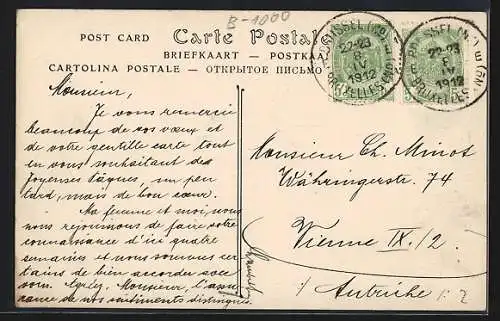 B-1000
POST CARD
Carte Postale
BRIEFKAART — POSTKAA
CARTOLINA POSTALE — ОТКРЫТОЕ ПИСЬМО
BRUSSEL (NO
22-23
8
IV
1912
BRUXELLES (NO
BRUSSEL (N
22-23
8
IV
1912
BRUXELLES (NO
Monsieur,
Je vous remercie
beaucoup de vos vœux et
de votre gentille carte tout
en vous souhaitant des
Joyeuses Pâques, un peu
tard, mais de bon cœur.
Ma femme et moi, nous
nous rejouirons de faire votre
connaissance d'ici quatre
semaines et nous sommes cer
tains de bien accorder avec
vous. Agréez, Monsieur, l'assu
rance de nos sentiments distingués.
Monsieur Ch. Minot
Währingerstr. 74
Vienne IX/2
Autriche